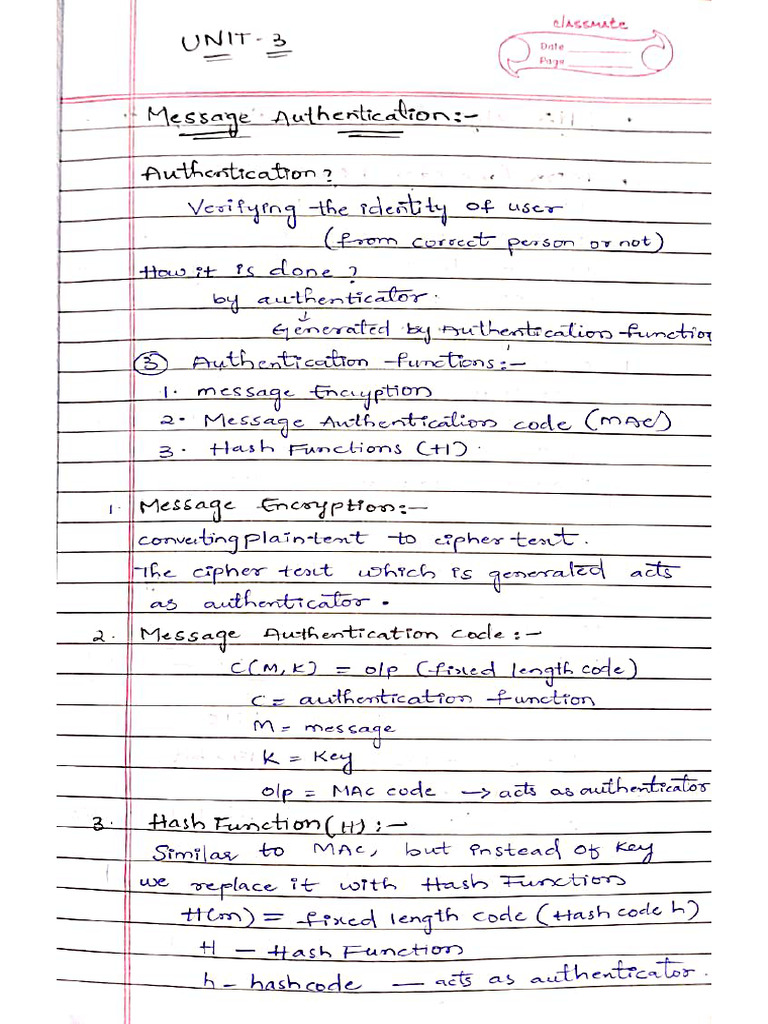 classmate
Date
Page
UNIT - 3
Message Authentication:-
Authentication?
Verifying the identity of user
(from correct person or not)
How it is done?
by authenticator.
↓
Generated by Authentication function
③ Authentication functions:-
1. message Encryption
2. Message Authentication code (MAC)
3. Hash Functions (H).
1. Message Encryption:-
converting plain text to cipher text.
The cipher text which is generated acts
as authenticator.
2. Message Authentication code:-
C(M,K) = o/p (fixed length code)
C = authentication function
M = message
K = Key
o/p = MAC code → acts as authenticator
3. Hash Function (H) :-
Similar to MAC, but instead of key
we replace it with Hash Function
H(m) = fixed length code (Hash code h)
H - Hash Function
h - hashcode — acts as authenticator.